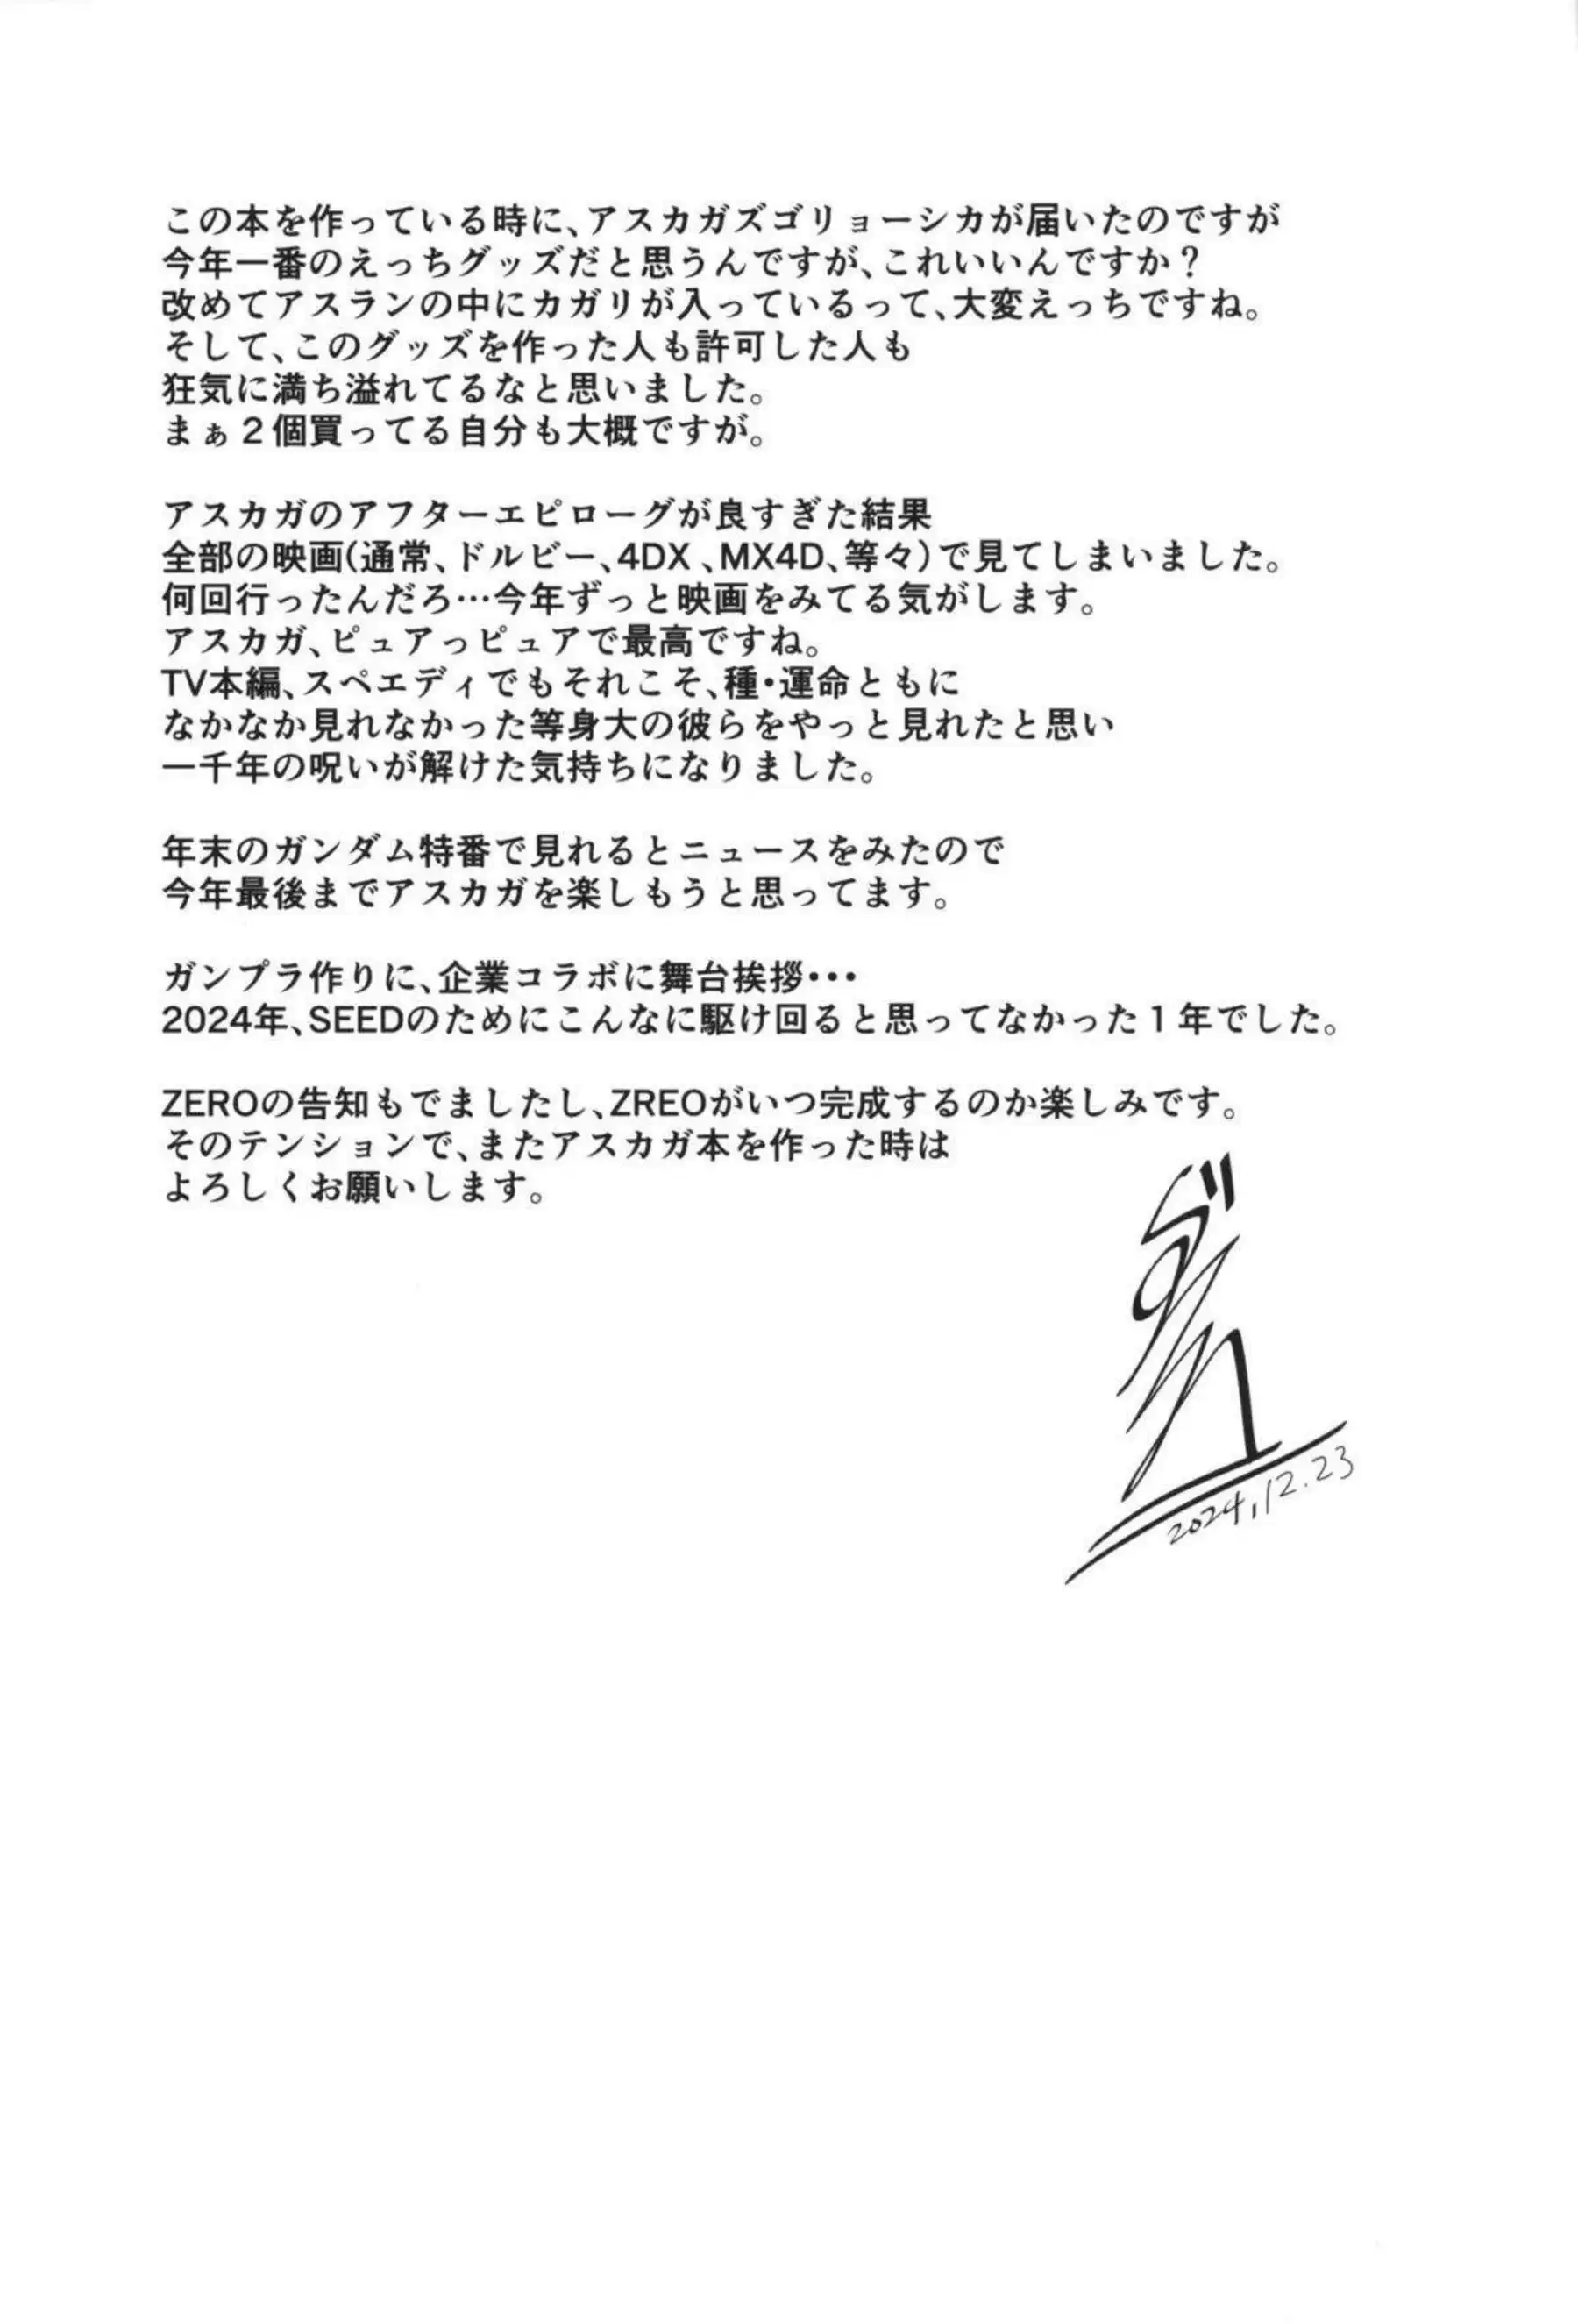 この本を作っている時に、アスカガズゴリョーシカが届いたのですが
今年一番のえっちグッズだと思うんですが、これいいんですか？
改めてアスランの中にカガリが入っているって、大変えっちですね。
そして、このグッズを作った人も許可した人も
狂気に満ち溢れてるなと思いました。
まぁ２個買ってる自分も大概ですが。
アスカガのアフターエピローグが良すぎた結果
全部の映画(通常、ドルビー、4DX、MX4D、等々)で見てしまいました。
何回行ったんだろ…今年ずっと映画をみてる気がします。
アスカガ、ピュアっピュアで最高ですね。
TV本編、スペエディでもそれこそ、種・運命ともに
なかなか見れなかった等身大の彼らをやっと見れたと思い
一千年の呪いが解けた気持ちになりました。
年末のガンダム特番で見れるとニュースをみたので
今年最後までアスカガを楽しもうと思ってます。
ガンプラ作りに、企業コラボに舞台挨拶・・・
2024年、SEEDのためにこんなに駆け回ると思ってなかった１年でした。
ZEROの告知もでましたし、ZREOがいつ完成するのか楽しみです。
そのテンションで、またアスカガ本を作った時は
よろしくお願いします。
2024.12.23